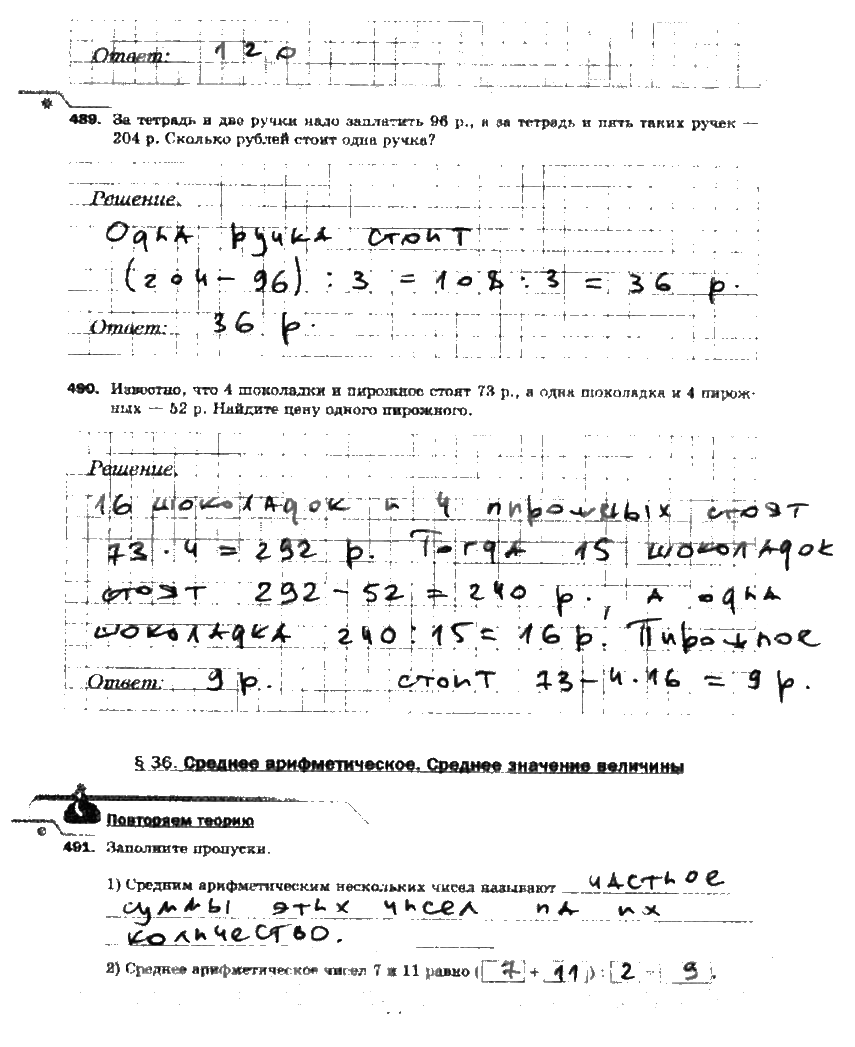 Ответ: 120
489. За тетрадь и две ручки надо заплатить 96 р., а за тетрадь и пять таких ручек —
204 р. Сколько рублей стоит одна ручка?
Решение.
Одна ручка стоит
(204 - 96) : 3 = 108 : 3 = 36 р.
Ответ: 36 р.
490. Известно, что 4 шоколадки и пирожное стоят 73 р., а одна шоколадка и 4 пирож-
ных — 52 р. Найдите цену одного пирожного.
Решение.
16 шоколадок и 4 пирожных стоят
73 · 4 = 292 р. Тогда 15 шоколадок
стоят 292 - 52 = 240 р., а одна
шоколадка 240 : 15 = 16 р. Пирожное
Ответ: 9 р. стоит 73 - 4 · 16 = 9 р.
§ 36. Среднее арифметическое. Среднее значение величины
Повторяем теорию
491. Заполните пропуски.
1) Средним арифметическим нескольких чисел называют частное
суммы этих чисел на их
количество.
2) Среднее арифметическое чисел 7 и 11 равно (7 + 11) : 2 = 9.